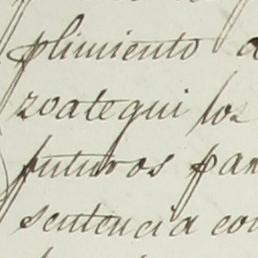 plimiento
zoategui los
futuros par
sentencia con